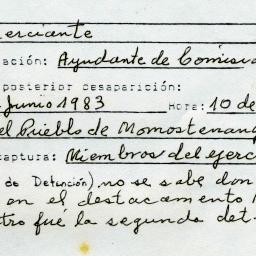 erciante
ación: Ayudante de Comisa
posterior desaparición:
Junio 1983 Hora: 10 de
el Pueblo de Momostenang
captura: Miembros del ejerc
de Detención). no se sabe don
en el destacamento
tro fué la segunda det